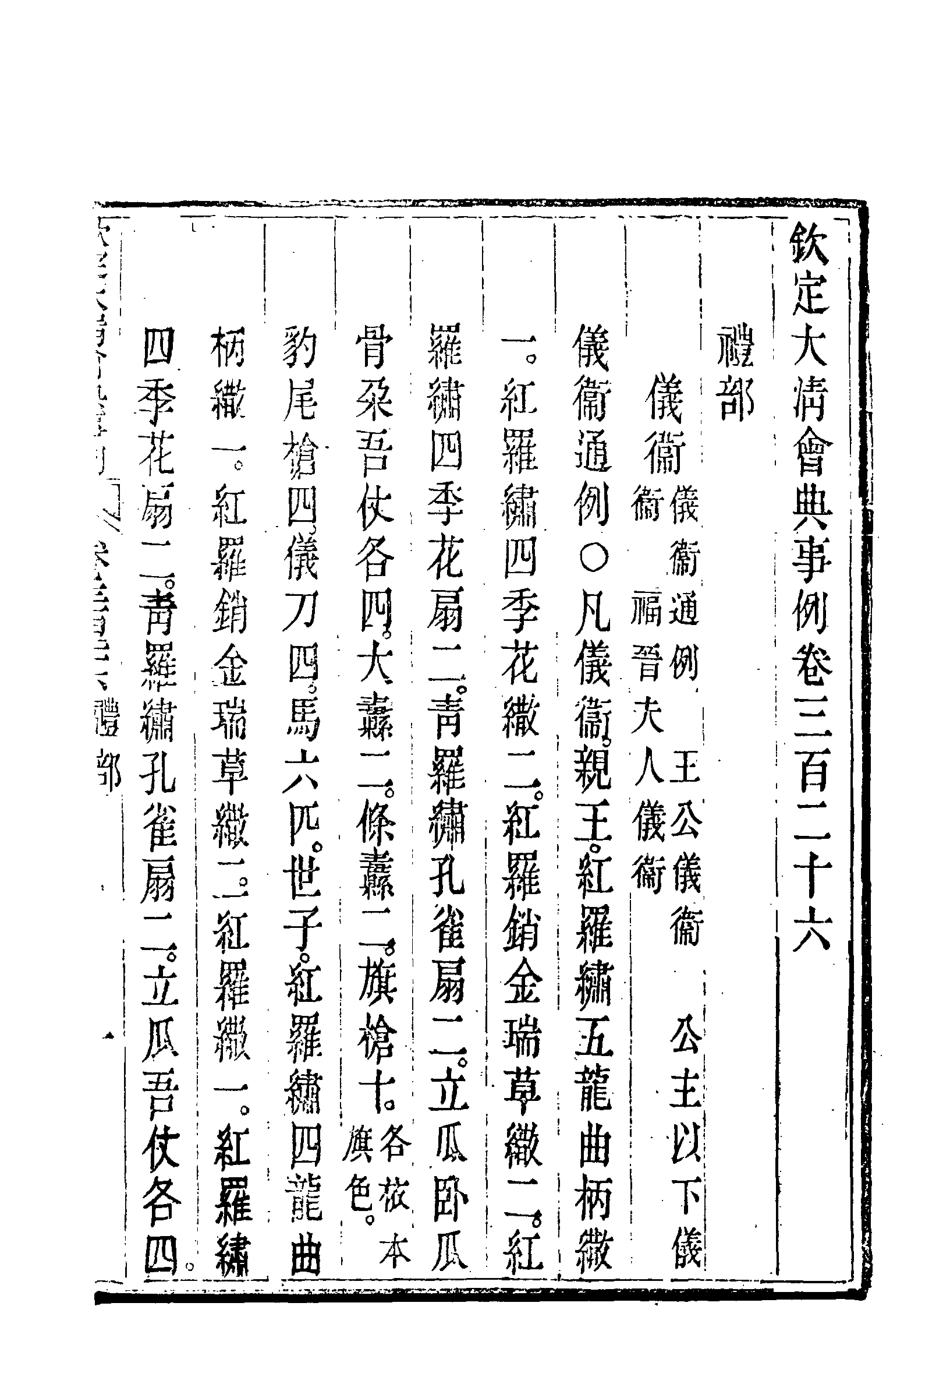 欽定大清會典事例卷三百二十六
禮部
儀衞儀衞通例　王公儀衞　公主以下儀衞　福晉夫人儀衞
儀衞通例○凡儀衞。親王。紅羅繡五龍曲柄繖
一。紅羅繡四季花繖二。紅羅銷金瑞草繖二。紅
羅繡四季花扇二。青羅繡孔雀扇二。立瓜卧瓜
骨朶吾仗各四。大纛二。條纛二。旗槍十。各依本旗色。
豹尾槍四。儀刀四。馬六匹。世子。紅羅繡四龍曲
柄繖一。紅羅銷金瑞草繖二。紅羅繖一。紅羅繡
四季花扇二。青羅繡孔雀扇二。立瓜吾仗各四。
欽定大清會典事例　卷三百二十六　禮部　一